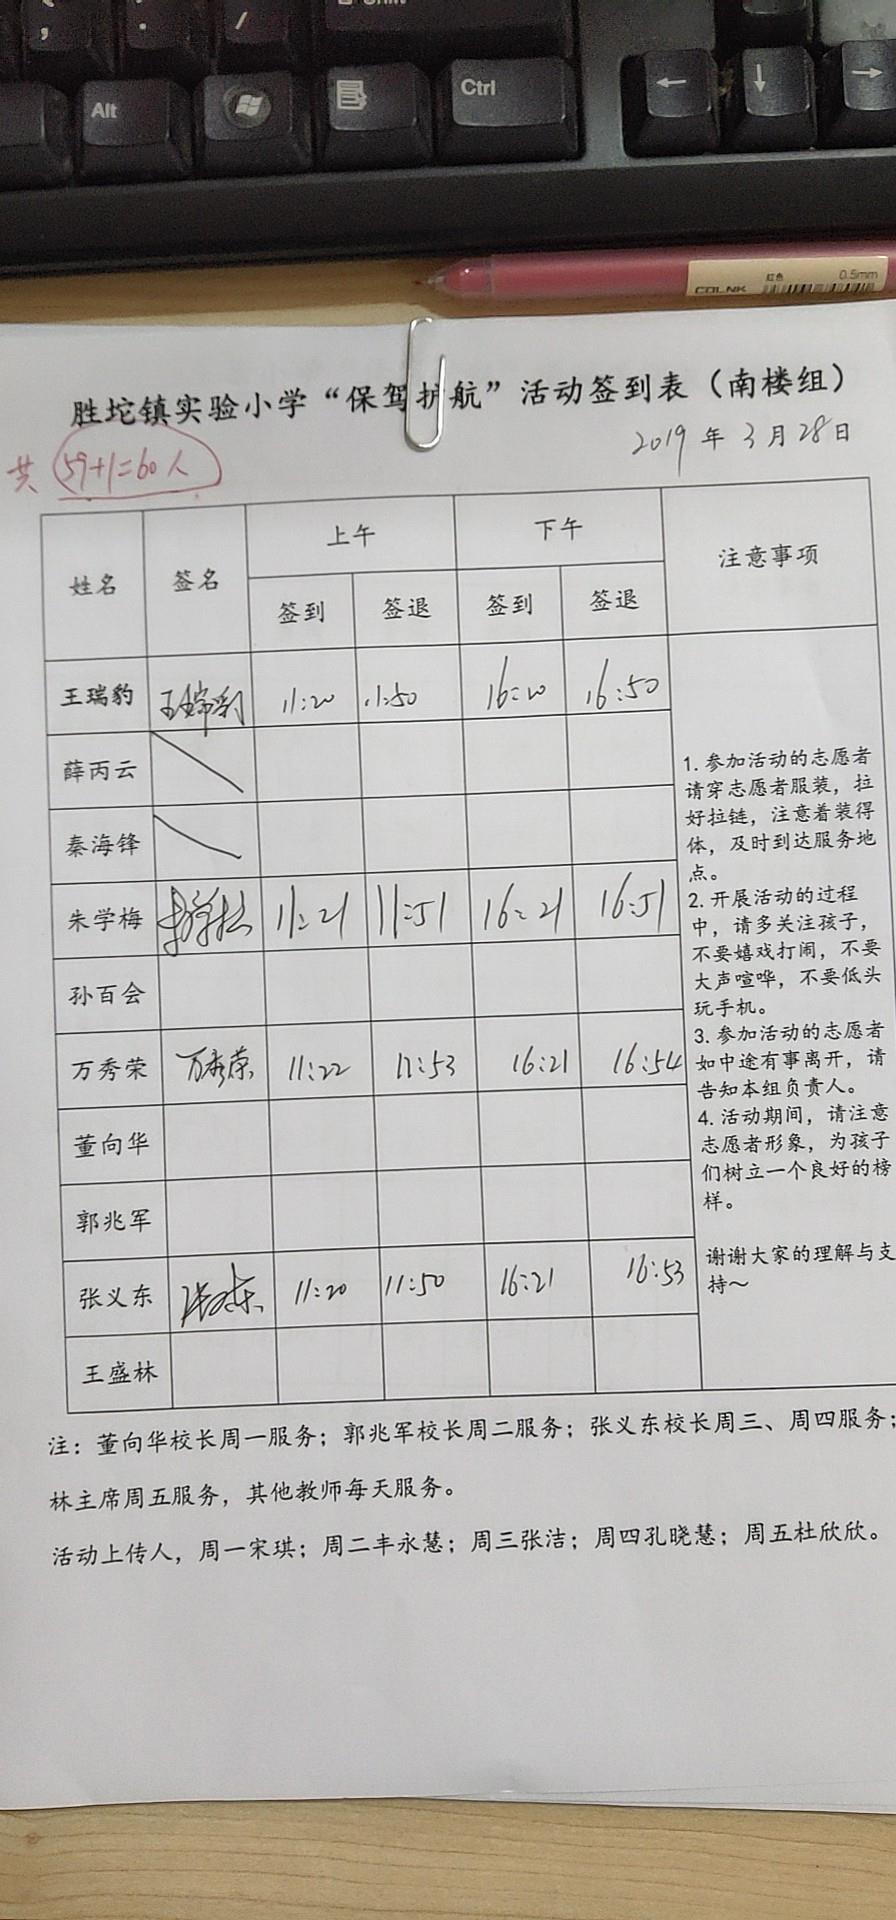 Shift
Alt
Ctrl
←
↓
→
红色
0.5mm
胜坨镇实验小学“保驾护航”活动签到表（南楼组）
2019年3月28日
共 59+1=60人
姓名 签名 上午 下午 注意事项
签到 签退 签到 签退
王瑞豹 王瑞豹 11:20 11:50 16:20 16:50
薛丙云
秦海锋
朱学梅 11:21 11:51 16:21 16:51
孙百会
万秀荣 万秀荣 11:22 11:53 16:21 16:54
董向华
郭兆军
张义东 张义东 11:20 11:50 16:21 16:53
王盛林
1. 参加活动的志愿者
请穿志愿者服装，拉
好拉链，注意着装得
体，及时到达服务地
点。
2. 开展活动的过程
中，请多关注孩子，
不要嬉戏打闹，不要
大声喧哗，不要低头
玩手机。
3. 参加活动的志愿者
如中途有事离开，请
告知本组负责人。
4. 活动期间，请注意
志愿者形象，为孩子
们树立一个良好的榜
样。
谢谢大家的理解与支
持～
注：董向华校长周一服务；郭兆军校长周二服务；张义东校长周三、周四服务；
林主席周五服务，其他教师每天服务。
活动上传人，周一宋琪；周二丰永慧；周三张洁；周四孔晓慧；周五杜欣欣。